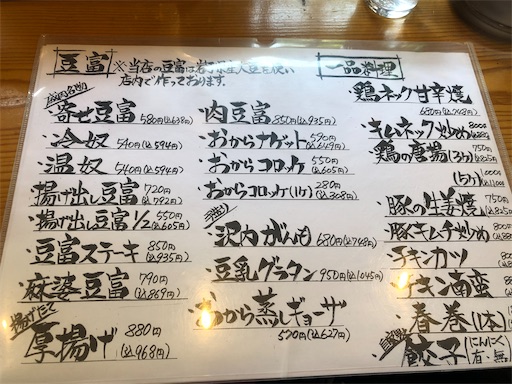 豆富 ※当店の豆富は岩手県産大豆を使い
店内で作っております。
寄せ豆富 580円(込638円)
・冷奴 540円(込594円)
・温奴 540円(込594円)
・揚げ出し豆富 720円(込792円)
・揚げ出し豆富1/2 550円(込605円)
・豆富ステーキ 850円(込935円)
・麻婆豆富 790円(込869円)
厚揚げ 880円(込968円)
・肉豆富 850円(込935円)
・おからナゲット 590円(込649円)
・おからコロッケ 550円(込605円)
・おからコロッケ(1ケ) 280円(込308円)
手造り
・沢内がんも 680円(込748円)
・豆乳グラタン 950円(込1045円)
・おから蒸しギョーザ
570円(込627円)
一品料理
・鶏ネック甘辛焼
680円(込748円)
・キムネック炒め 800円
(込880
・鶏の唐揚(3ケ) 750円
(込825円
(5ケ) 1,000円
(込1100
・豚の生姜焼 750円
(込825
・豚キムチ炒め 800円
(込880
・チキンカツ 800円
(込880
・チキン南蛮 800円
・春巻(1本)
餃子(にんにく
有・無)